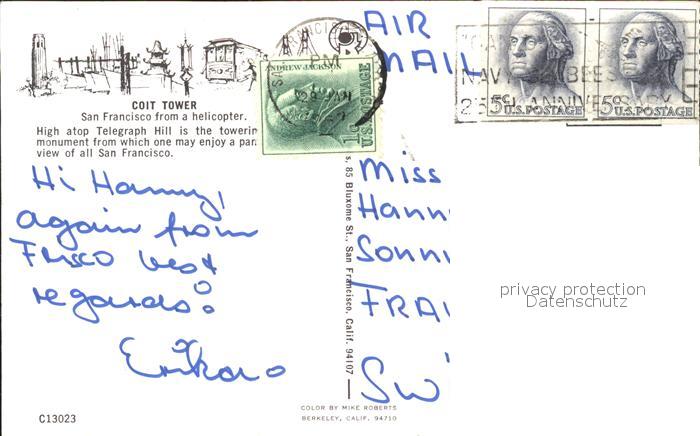 COIT TOWER
San Francisco from a helicopter.
High atop Telegraph Hill is the towerin
monument from which one may enjoy a pan
view of all San Francisco.
Hi Hanny,
again from
Frisco best
regards:
C13023
ANDREW JACKSON
1c U.S. POSTAGE
s, 85 Bluxome St., San Francisco, Calif. 94107
COLOR BY MIKE ROBERTS
BERKELEY, CALIF. 94710
AIR
MAIL
5c U.S. POSTAGE
5c U.S. POSTAGE
NAVY SEABEES
25TH ANNIVERSARY
Miss
Hann
Sonn
FRA
Sw
privacy protection
Datenschutz